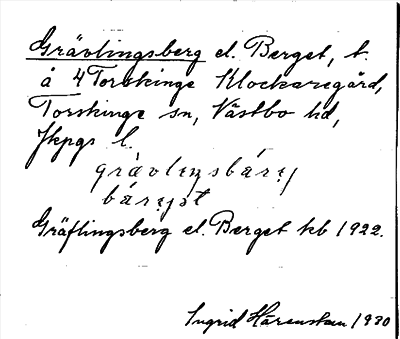 Grävlingsberg el. Berget, t.
å 4 Torskinge Klockaregård,
Torskinge sn, Västbo hd,
Jkpgs l.
grävleŋsbárej
bárejət
Gräflingsberg el. Berget kb 1922.
Ingrid Härenstam 1930